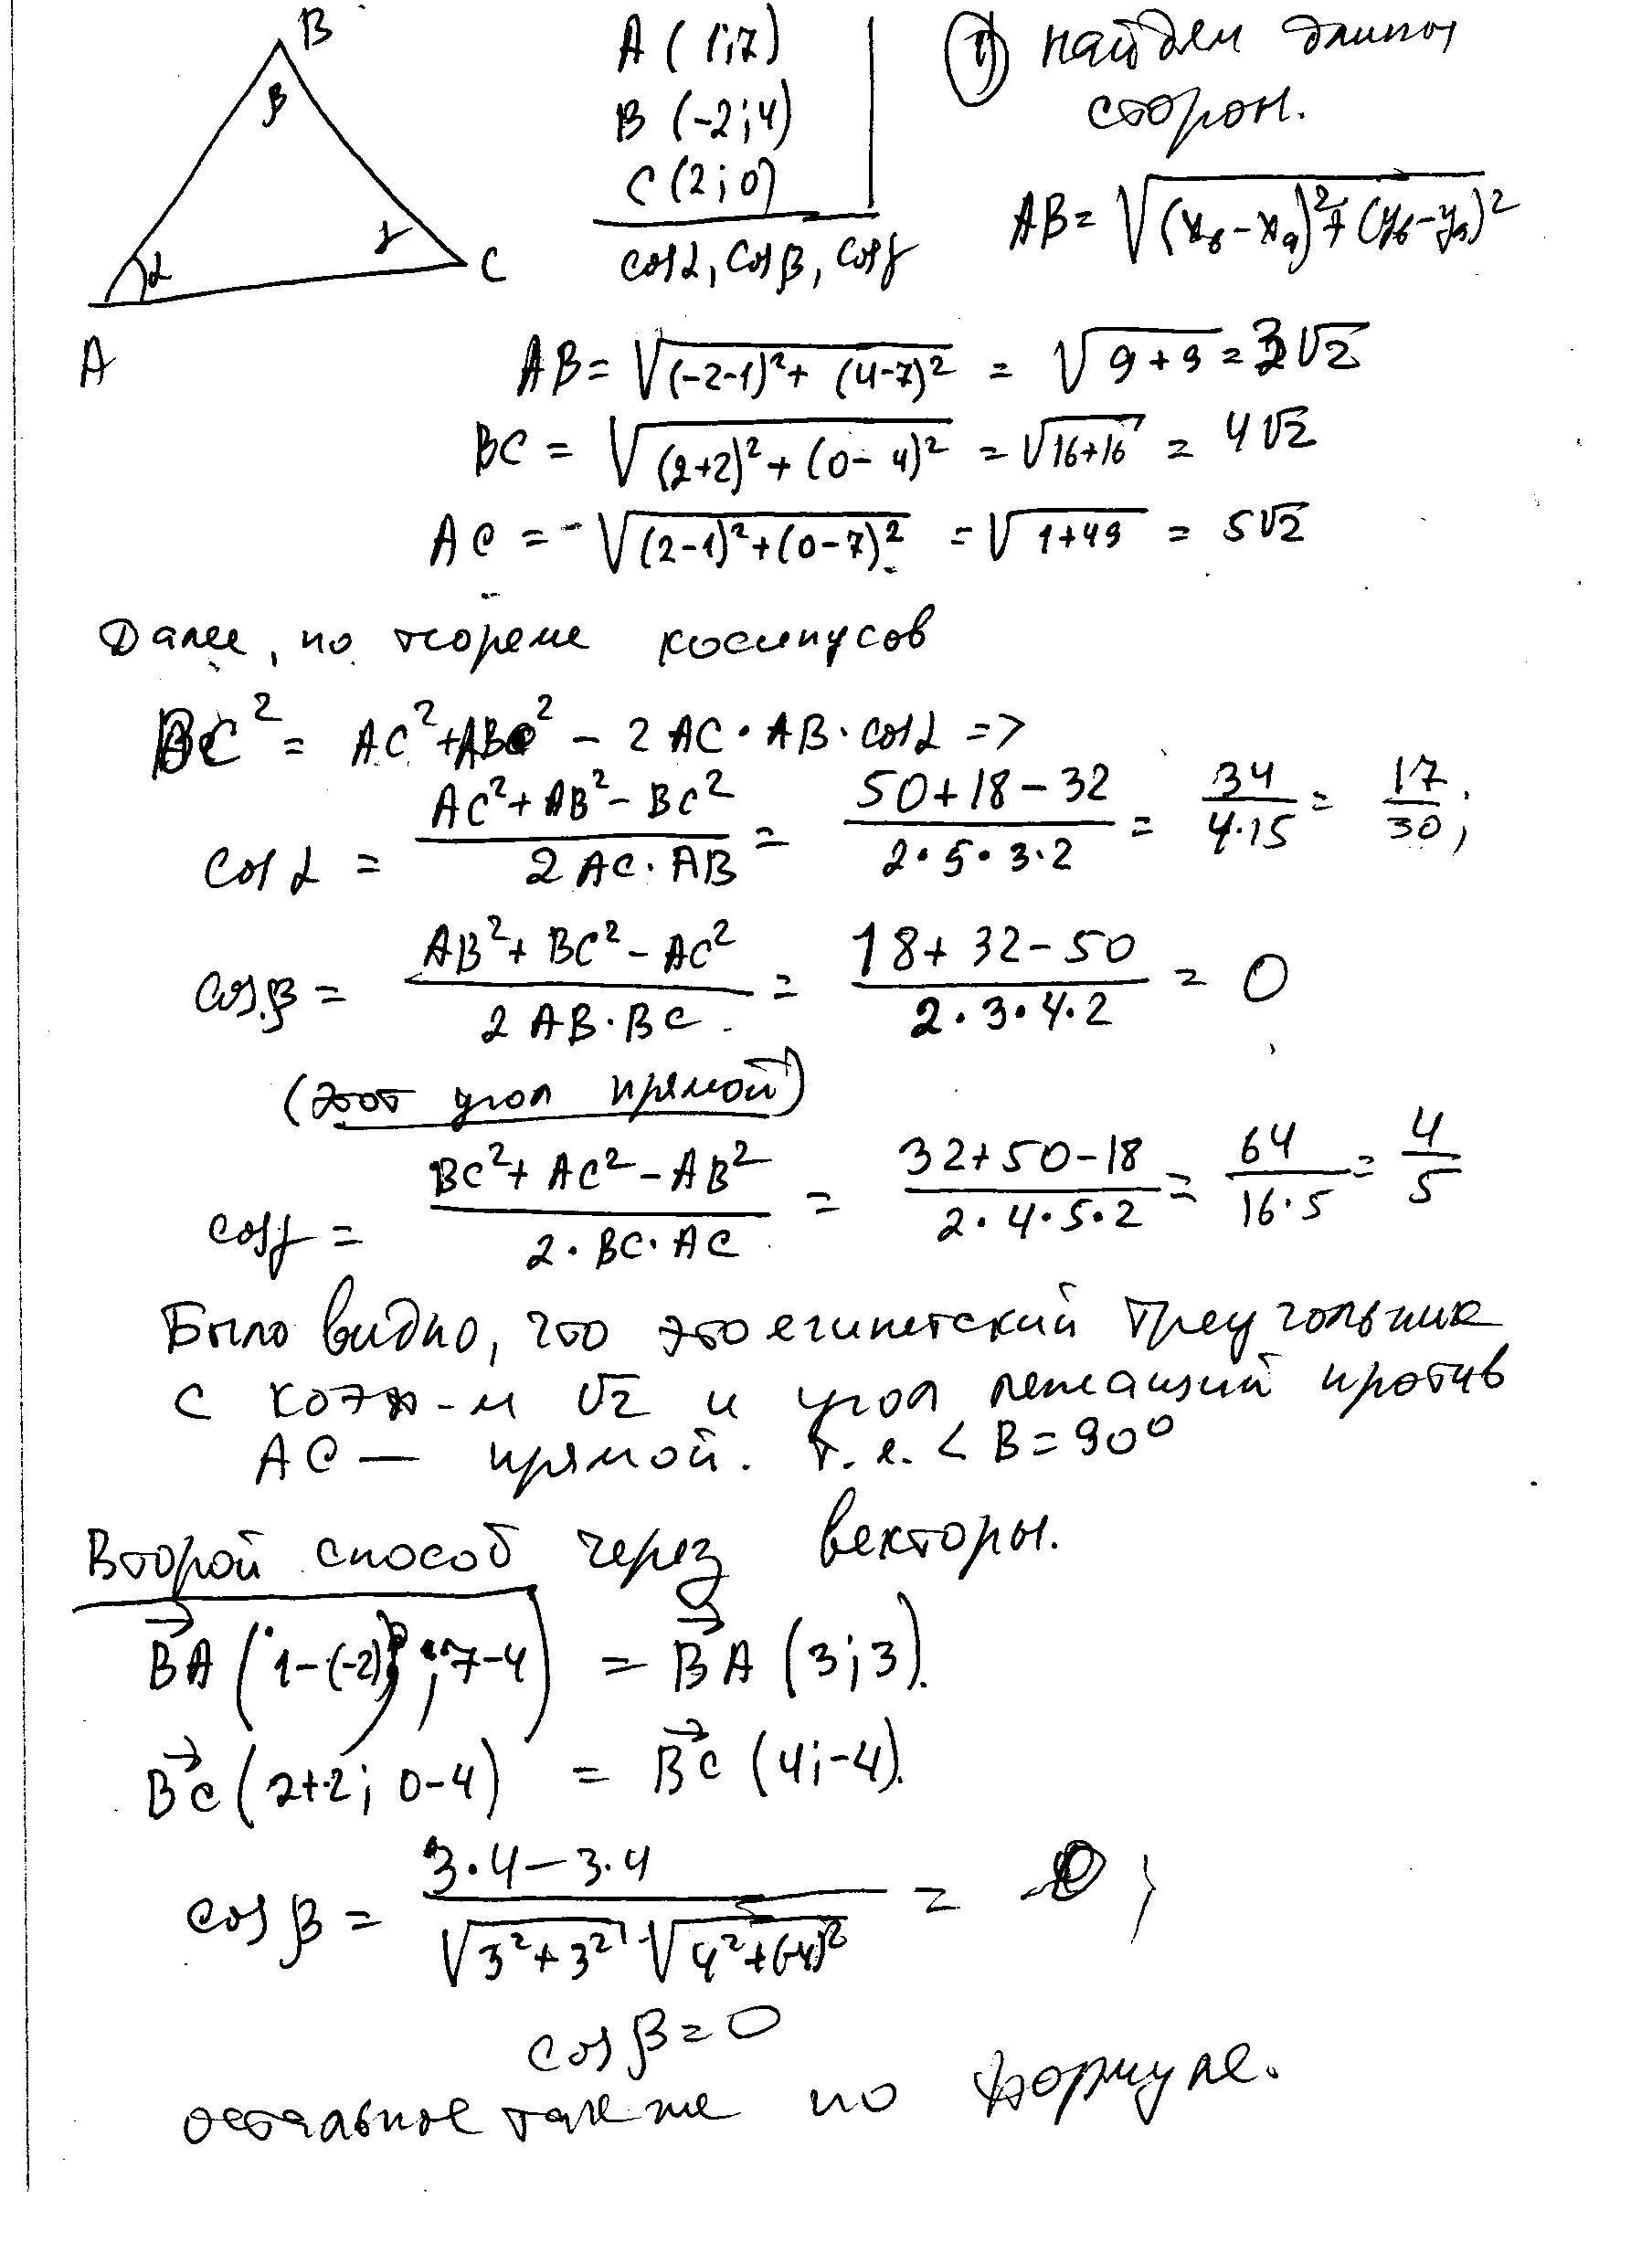 B
β
γ
C
α
A
A (1;7)
B (-2;4)
C (2;0)
cosα, cosβ, cosγ
1) найдем длины
сторон.
AB = √((x_B - x_A)² + (y_B - y_A)²)
AB = √((-2-1)² + (4-7)²) = √(9+9) = 3√2
BC = √((2+2)² + (0-4)²) = √(16+16) = 4√2
AC = √((2-1)² + (0-7)²) = √(1+49) = 5√2
Далее, по теореме косинусов
BC² = AC² + AB² - 2 AC · AB · cosα =>
cosα = (AC² + AB² - BC²)/(2 AC · AB) = (50+18-32)/(2·5·3·2) = 34/(4·15) = 17/30;
cosβ = (AB² + BC² - AC²)/(2 AB · BC) = (18+32-50)/(2·3·4·2) = 0
(этот угол прямой)
cosγ = (BC² + AC² - AB²)/(2 · BC · AC) = (32+50-18)/(2·4·5·2) = 64/(16·5) = 4/5
Было видно, что это египетский треугольник
с коэф-м √2 и угол лежащий против
AC — прямой. т.е. < B = 90°
Второй способ через векторы.
BA (1-(-2); 7-4) = BA (3;3).
BC (2+2; 0-4) = BC (4;-4).
cosβ = (3·4 - 3·4)/(√(3²+3²) · √(4²+(-4)²)) = 0;
cosβ = 0
остальное также по формуле.